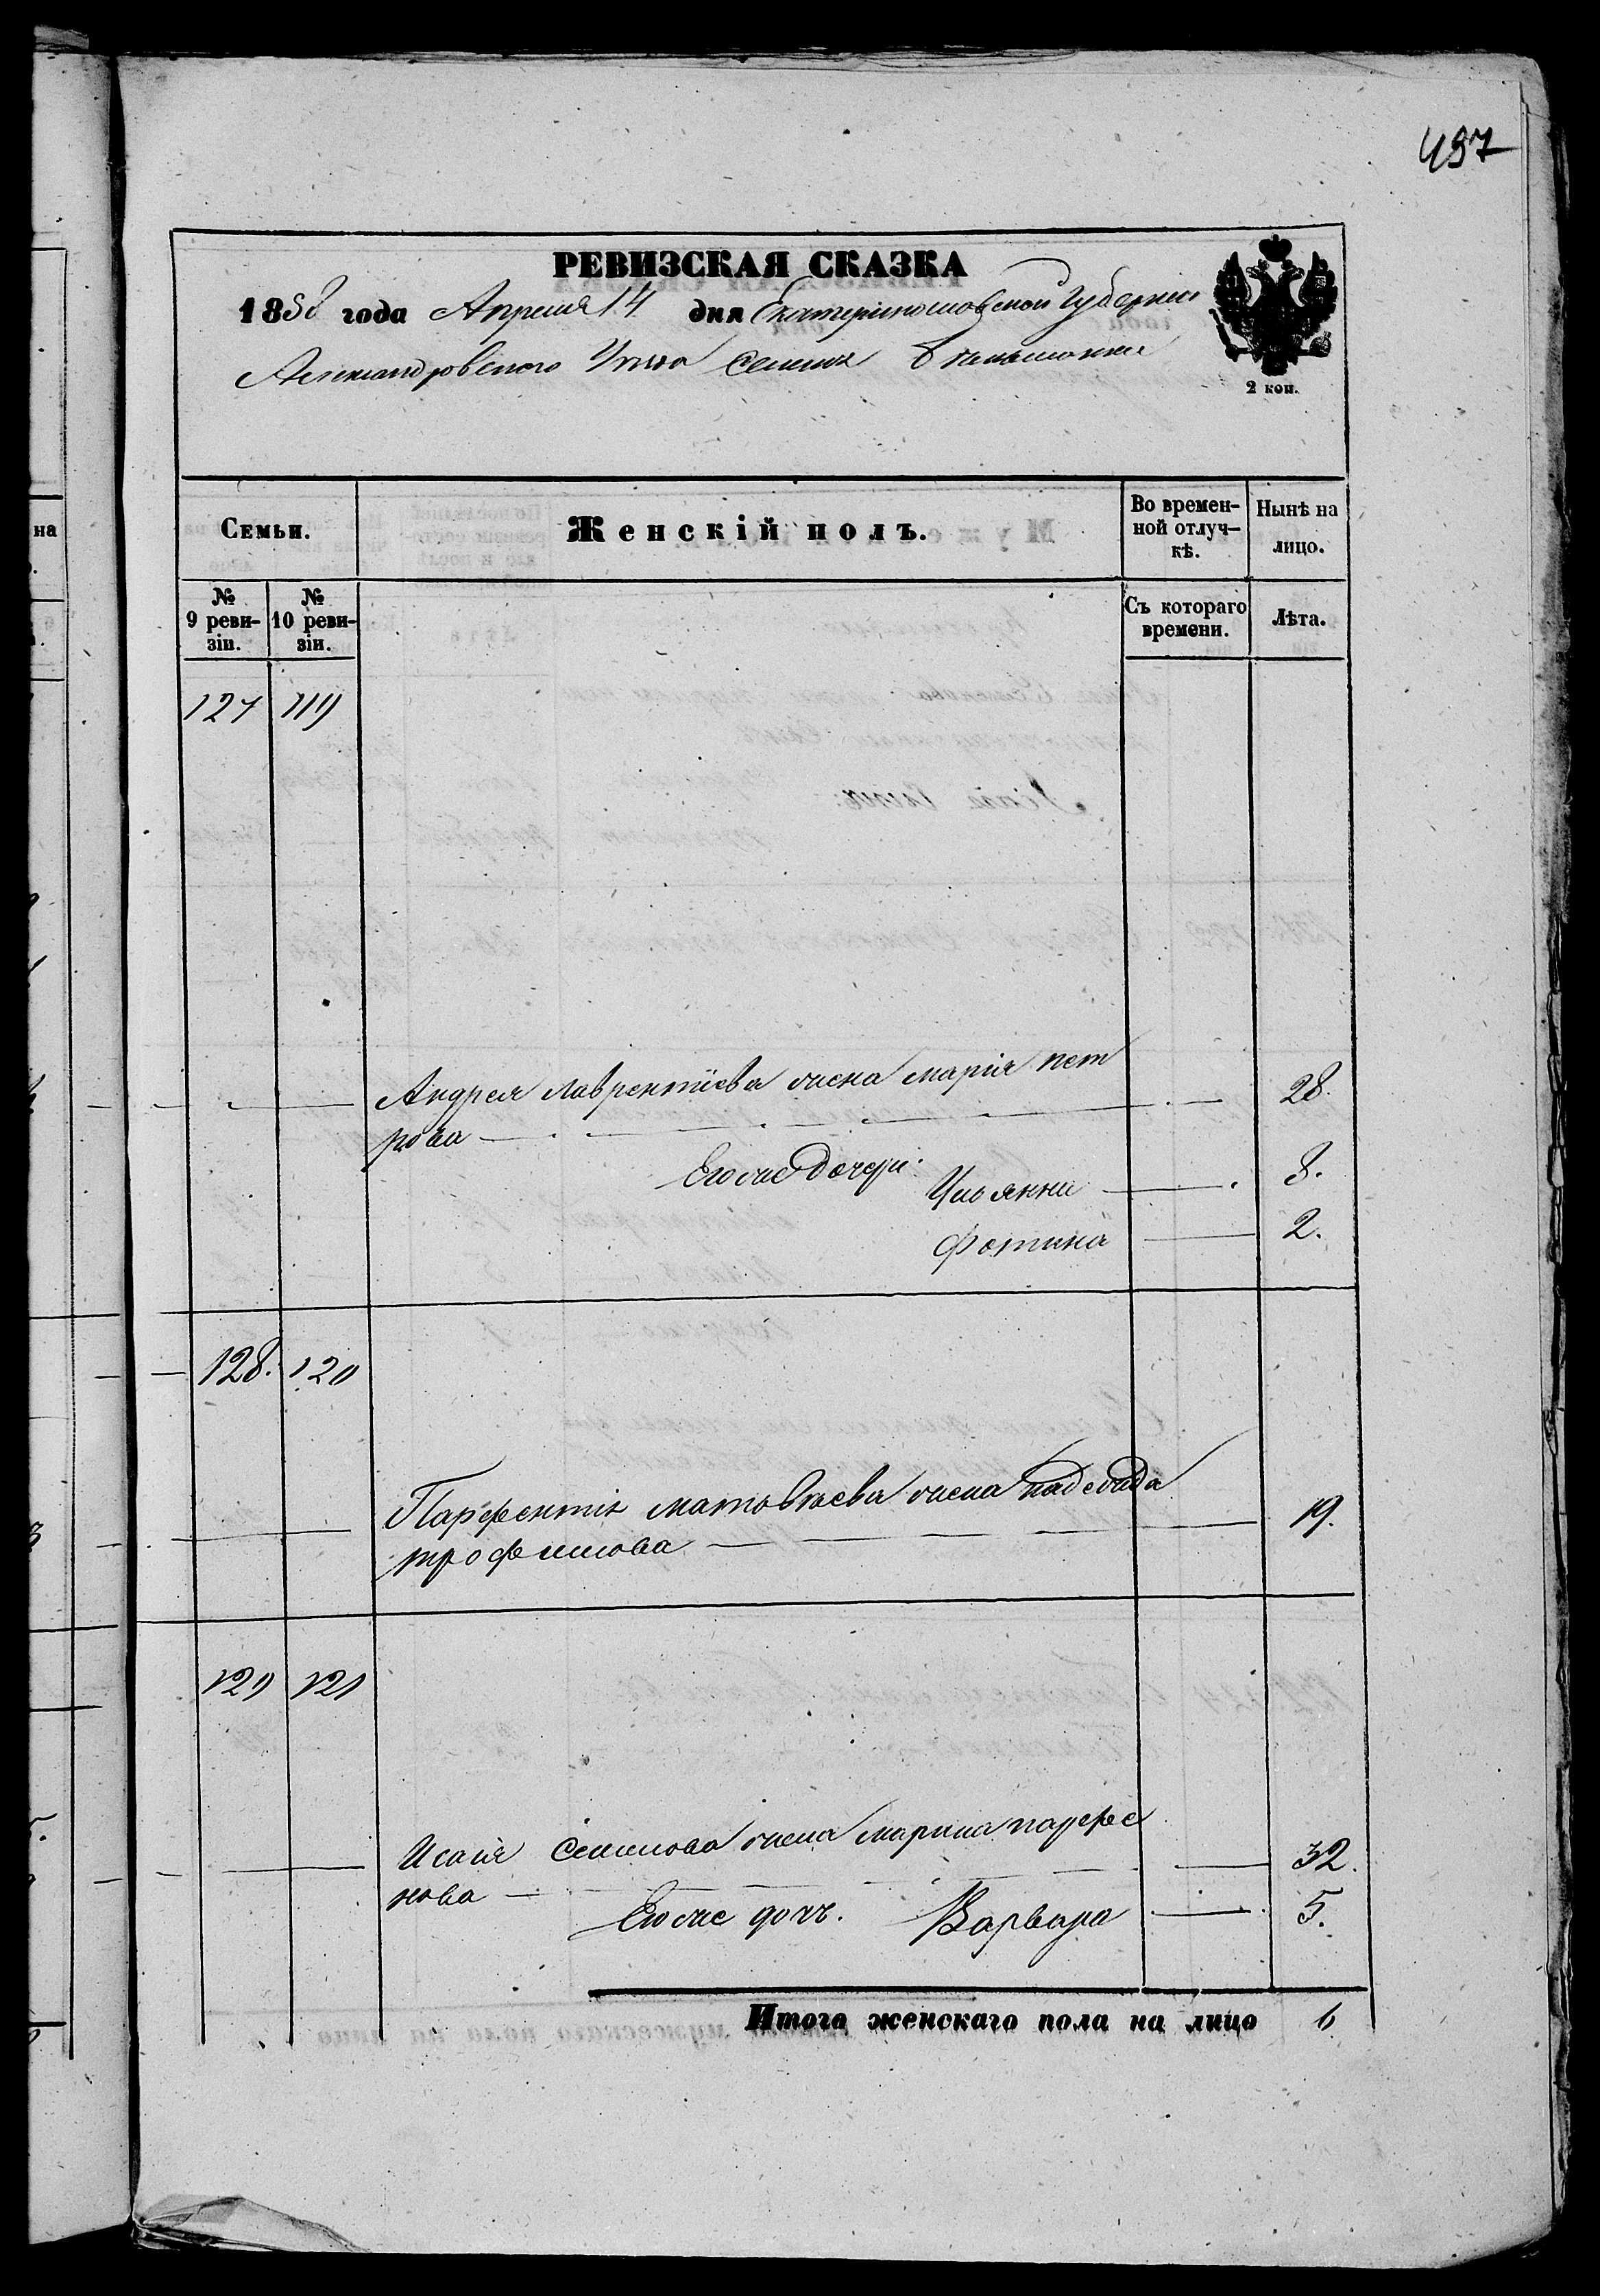 497
РЕВИЗСКАЯ СКАЗКА
1858 года Апреля 14 дня Екатеринославской Губернии
Александровского Уѣзда Селения
2 коп.
Семьи.
Женскій полъ.
Во времен-
ной отлуч-
кѣ.
Нынѣ на
лицо.
№
9 реви-
зіи.
№
10 реви-
зіи.
Съ котораго
времени.
Лѣта.
127 119
Андрея Лаврентіева жена Марія Пет
рова 28.
Его же дочери:
Ульянна 8.
Фотина 2.
128. 120
Парфентія Матовѣева жена Надежда
Трофимова 19.
129 121
Исаія Семенова жена Марина Парфе
нова 32.
Его же дочь. Варвара 5.
Итого женскаго пола на лицо 6
на